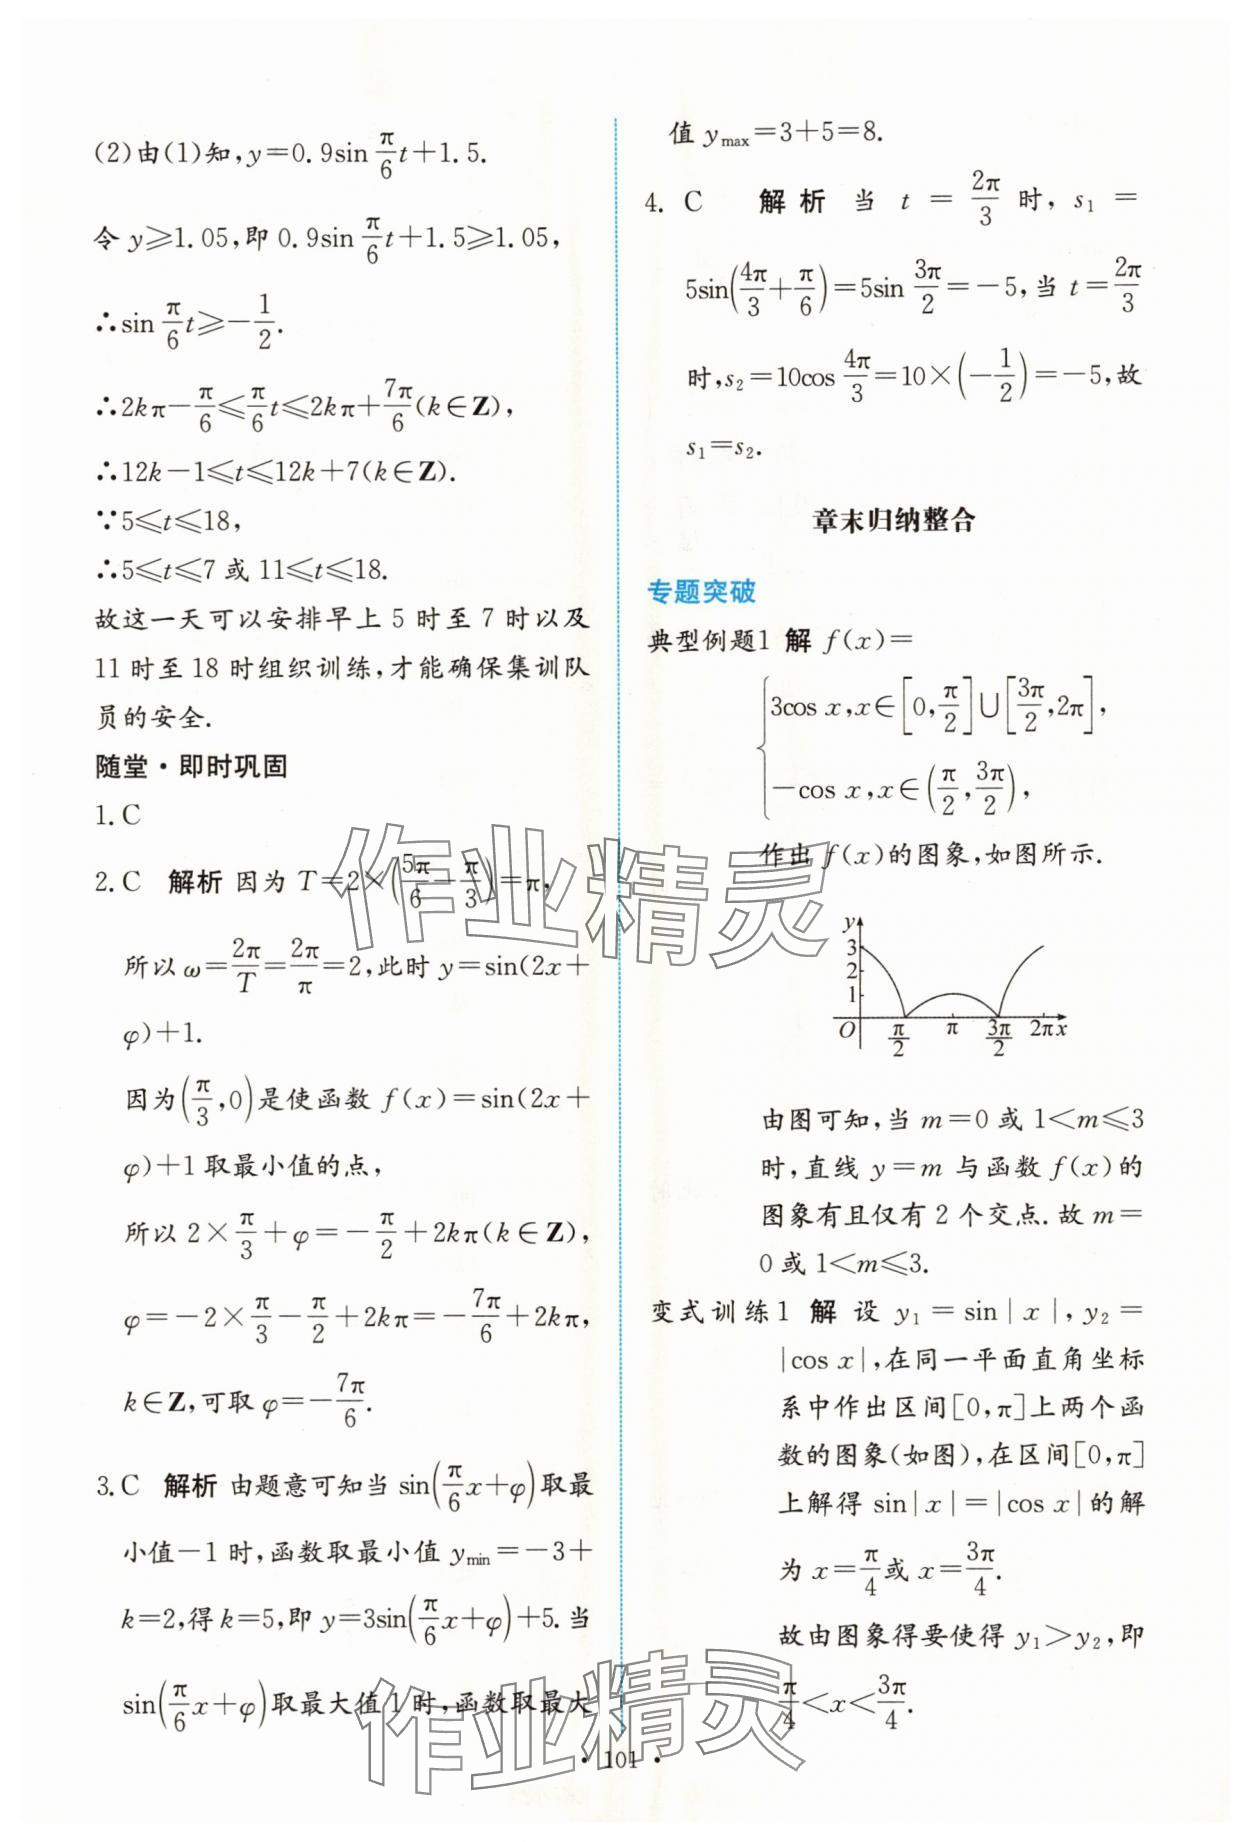 (2)由(1)知,y=0.9sin π/6 t+1.5.
令 y≥1.05,即 0.9sin π/6 t+1.5≥1.05,
∴sin π/6 t≥-1/2.
∴2kπ-π/6≤π/6 t≤2kπ+7π/6(k∈Z),
∴12k-1≤t≤12k+7(k∈Z).
∵5≤t≤18,
∴5≤t≤7 或 11≤t≤18.
故这一天可以安排早上 5 时至 7 时以及
11 时至 18 时组织训练,才能确保集训队
员的安全.
随堂·即时巩固
1. C
2. C 解析 因为 T=2×(5π/6-π/3)=π,
所以 ω=2π/T=2π/π=2,此时 y=sin(2x+
φ)+1.
因为(π/3,0)是使函数 f(x)=sin(2x+
φ)+1 取最小值的点,
所以 2×π/3+φ=-π/2+2kπ(k∈Z),
φ=-2×π/3-π/2+2kπ=-7π/6+2kπ,
k∈Z,可取 φ=-7π/6.
3. C 解析 由题意可知当 sin(π/6 x+φ)取最
小值-1 时,函数取最小值 ymin=-3+
k=2,得 k=5,即 y=3sin(π/6 x+φ)+5. 当
sin(π/6 x+φ)取最大值 1 时,函数取最大
值 ymax=3+5=8.
4. C 解析 当 t=2π/3 时,s₁=
5sin(4π/3+π/6)=5sin 3π/2=-5,当 t=2π/3
时,s₂=10cos 4π/3=10×(-1/2)=-5,故
s₁=s₂.
章末归纳整合
专题突破
典型例题1 解 f(x)=
{3cos x,x∈[0,π/2]∪[3π/2,2π],
-cos x,x∈(π/2,3π/2),
作出 f(x)的图象,如图所示.
y
3
2
1
O π/2 π 3π/2 2π x
由图可知,当 m=0 或 1<m≤3
时,直线 y=m 与函数 f(x)的
图象有且仅有 2 个交点. 故 m=
0 或 1<m≤3.
变式训练1 解 设 y₁=sin|x|,y₂=
|cos x|,在同一平面直角坐标
系中作出区间[0,π]上两个函
数的图象(如图),在区间[0,π]
上解得 sin|x|=|cos x|的解
为 x=π/4或 x=3π/4.
故由图象得要使得 y₁>y₂,即
π/4<x<3π/4.
作业精灵
作业精灵
· 101 ·